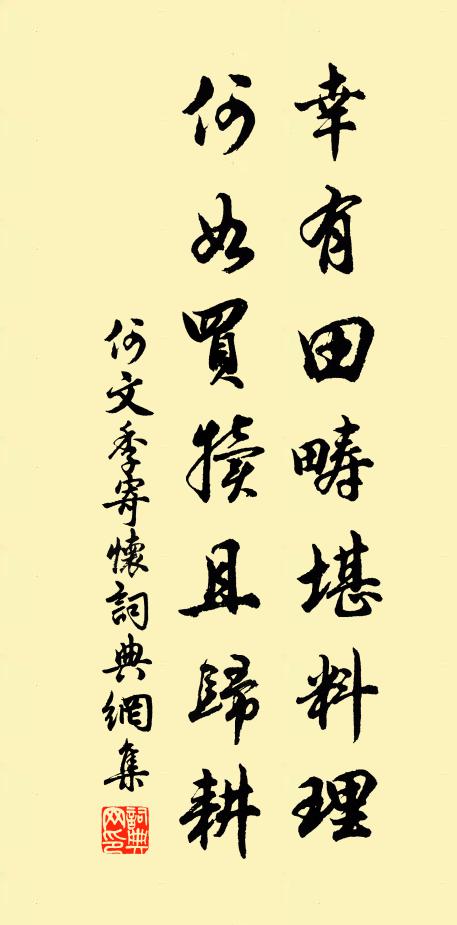 幸有田疇堪料理
何如買犢且歸耕
何文季寄懷詞典網集
詞典
网印